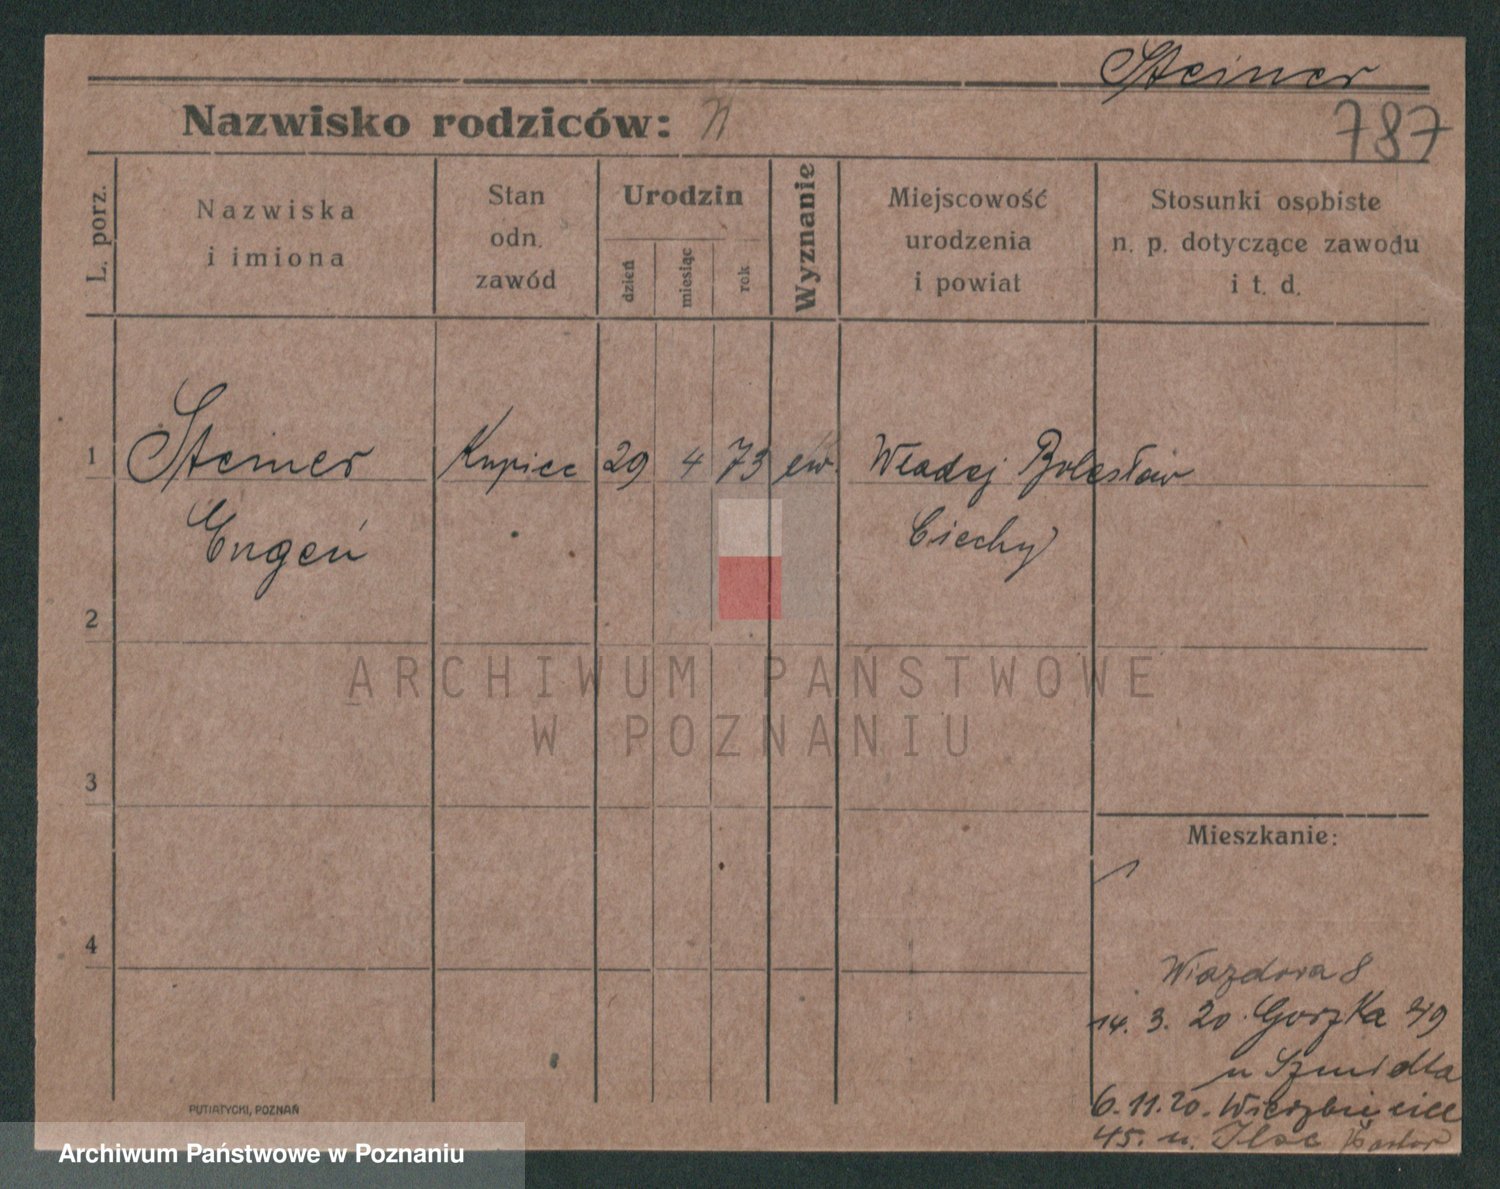 Steiner
Nazwisko rodziców:
787
L. porz.
Nazwiska
i imiona
Stan
odn.
zawód
Urodzin
dzień
miesiąc
rok
Wyznanie
Miejscowość
urodzenia
i powiat
Stosunki osobiste
n. p. dotyczące zawodu
i t. d.
1 Steiner Kupiec 29 4 73 ew. Władzj Bolesław
Eugen Ciechy
2
3
4
Mieszkanie:
Wiazdowa 8
14. 3. 20. Gorzka
u Szmidta
6.11.20. Wierzbięcice
45. u.
PUTIATYCKI, POZNAŃ
ARCHIWUM PAŃSTWOWE
W POZNANIU
Archiwum Państwowe w Poznaniu